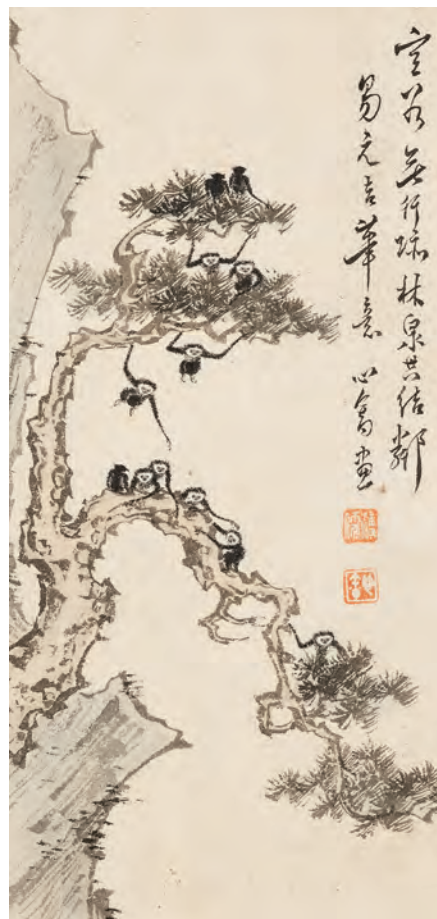 空谷無行跡林泉共結鄰
易元吉筆意 心畬畫